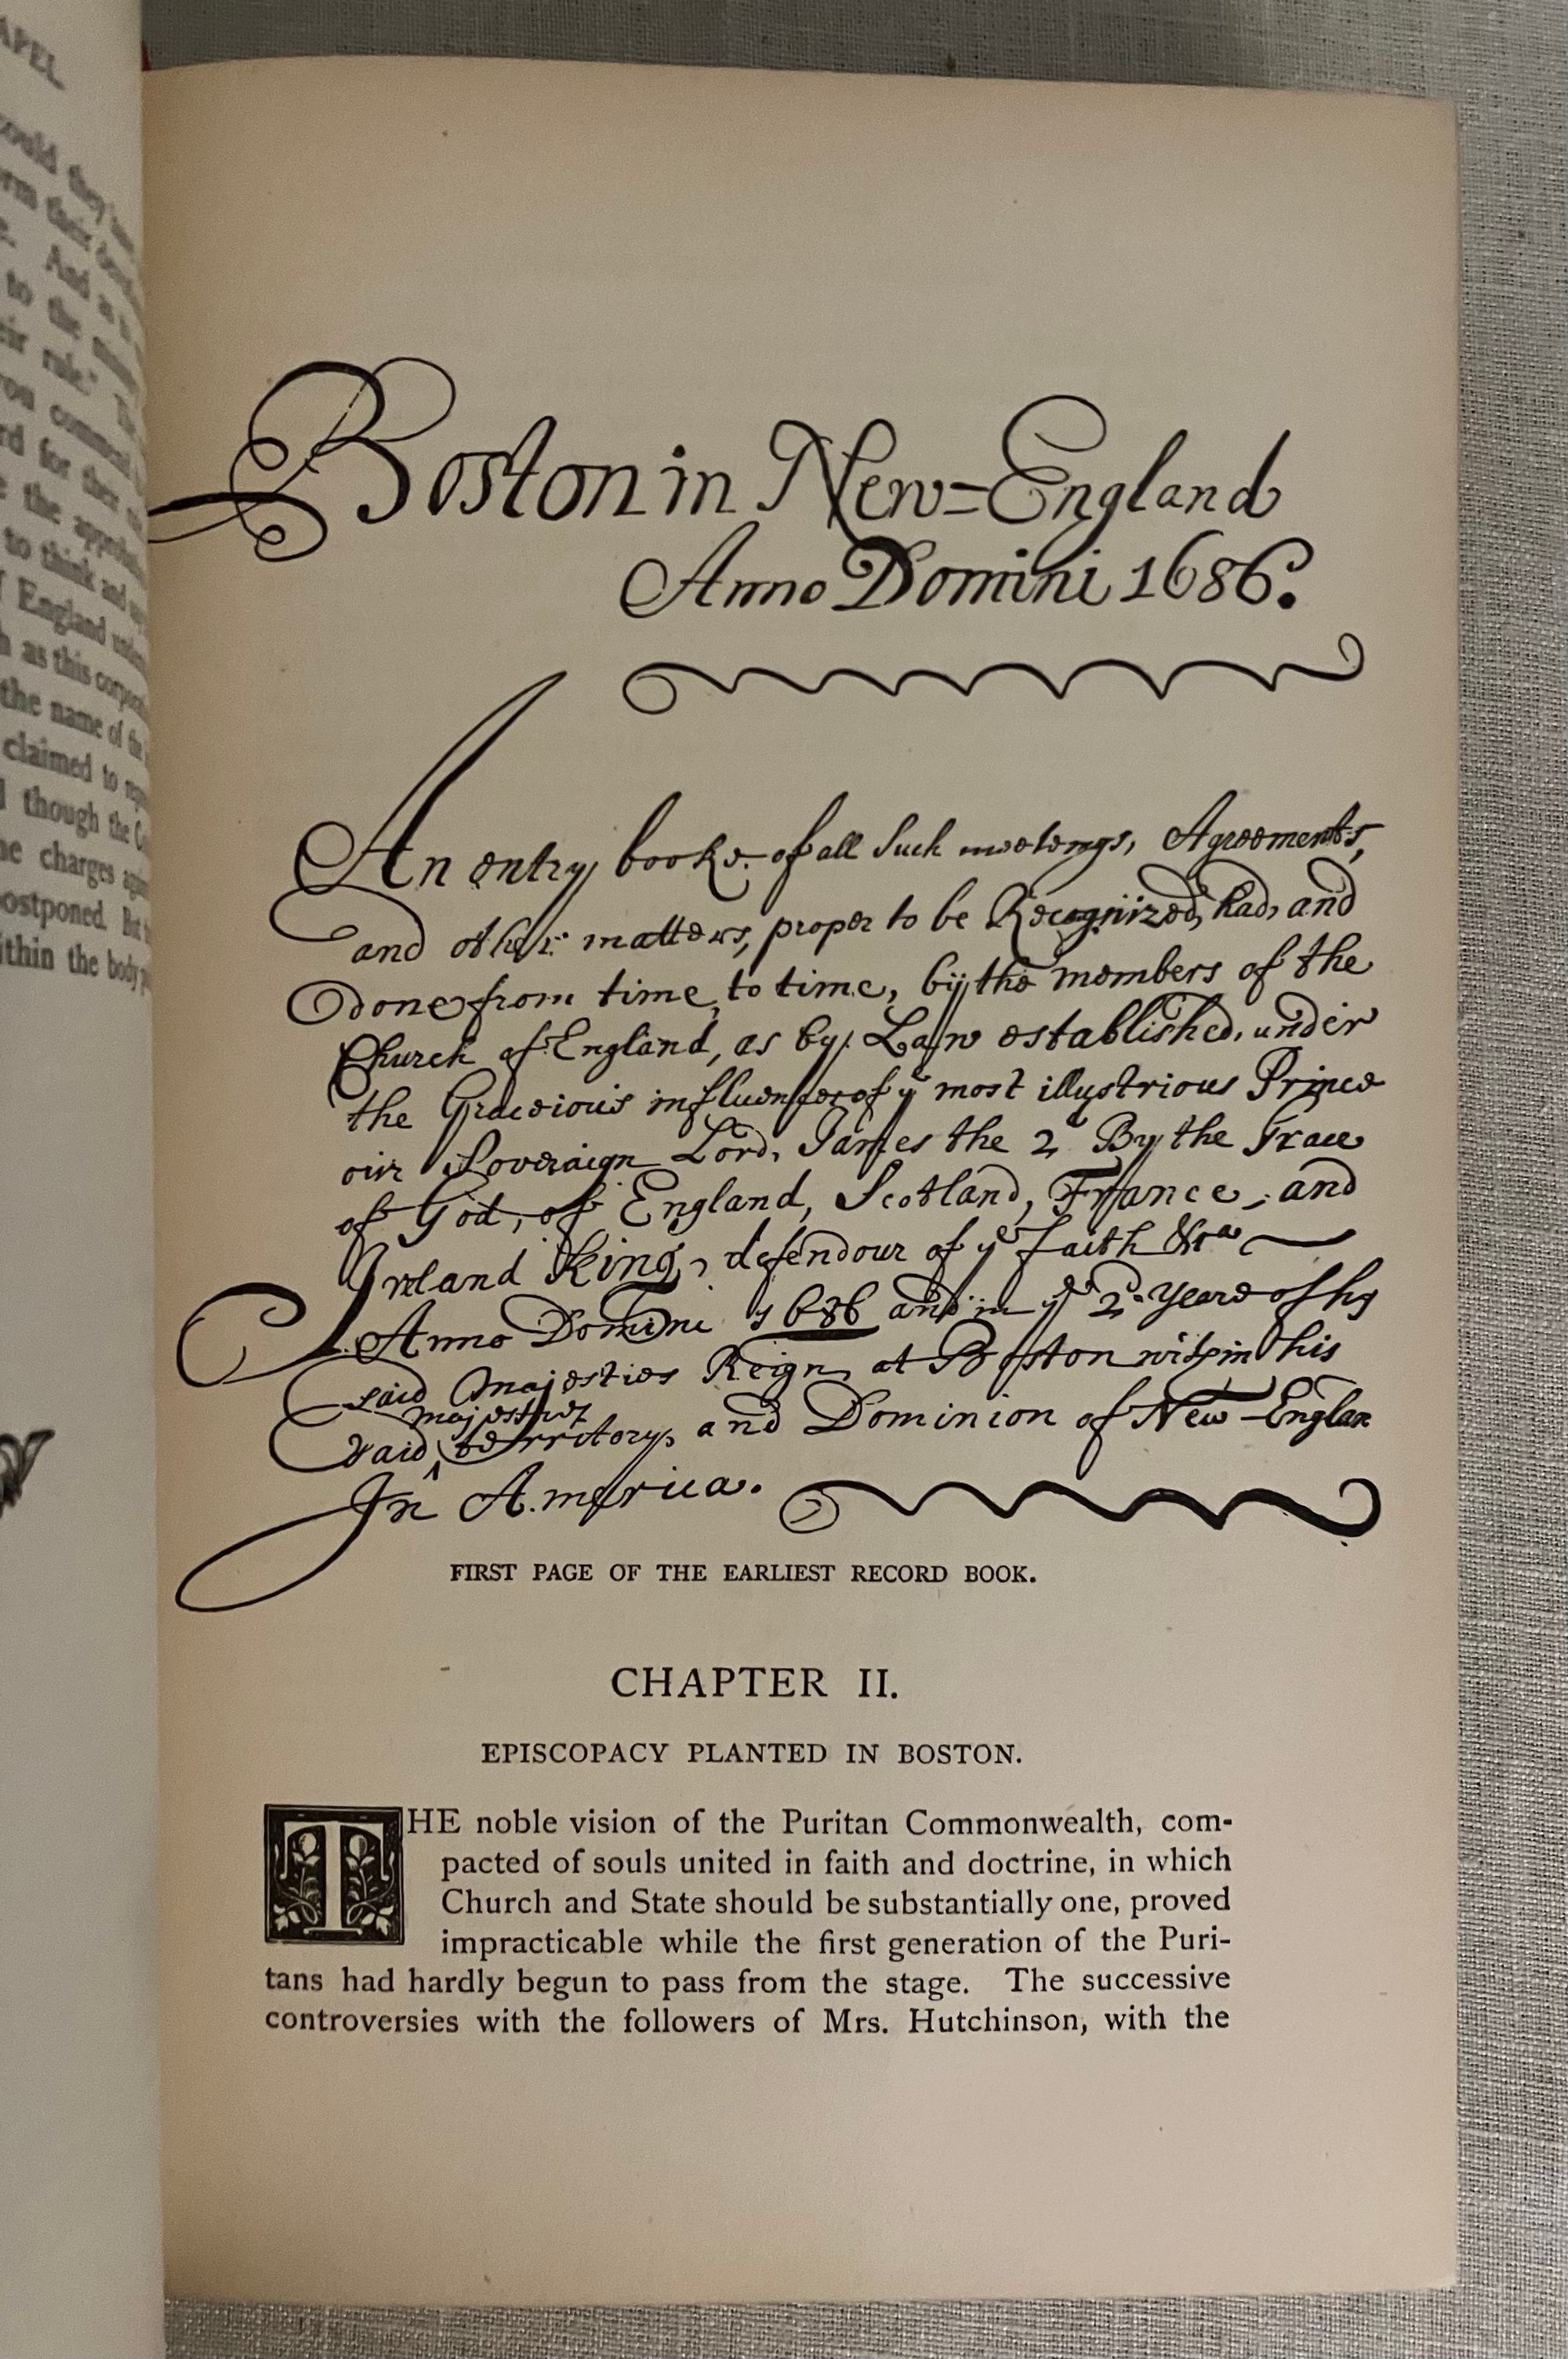 APEL
could they
orm their
e. And as
to the
eir rule." The
you commend
rd for
e the
to think and say
f England
h as this
the name of the
claimed to
d though the
he charges
postponed. But
ithin the body
Boston in New=England
Anno Domini 1686.
An entry booke of all Such meetings, Agreements,
and other matters, proper to be Recognized, had, and
done from time, to time, by the members of the
Church of England, as by Law established, under
the Gracious influences of yᵉ most illustrious Prince
our Soveraign Lord, James the 2ᵈ By the Grace
of God, of England, Scotland, France, and
Ireland King, defendour of yᵉ faith &cᵃ
Anno Domini 1686 and in yᵉ 2ᵈ yeare of his
said Majesties Reign, at Boston within his
majesties
said ^ territory, and Dominion of New-Englan
In America.
FIRST PAGE OF THE EARLIEST RECORD BOOK.
CHAPTER II.
EPISCOPACY PLANTED IN BOSTON.
THE noble vision of the Puritan Commonwealth, com-
pacted of souls united in faith and doctrine, in which
Church and State should be substantially one, proved
impracticable while the first generation of the Puri-
tans had hardly begun to pass from the stage. The successive
controversies with the followers of Mrs. Hutchinson, with the